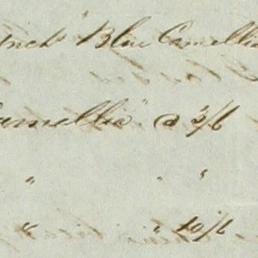 Blue Camellia
Camellia" @ 3/6
" "
" " 10/6